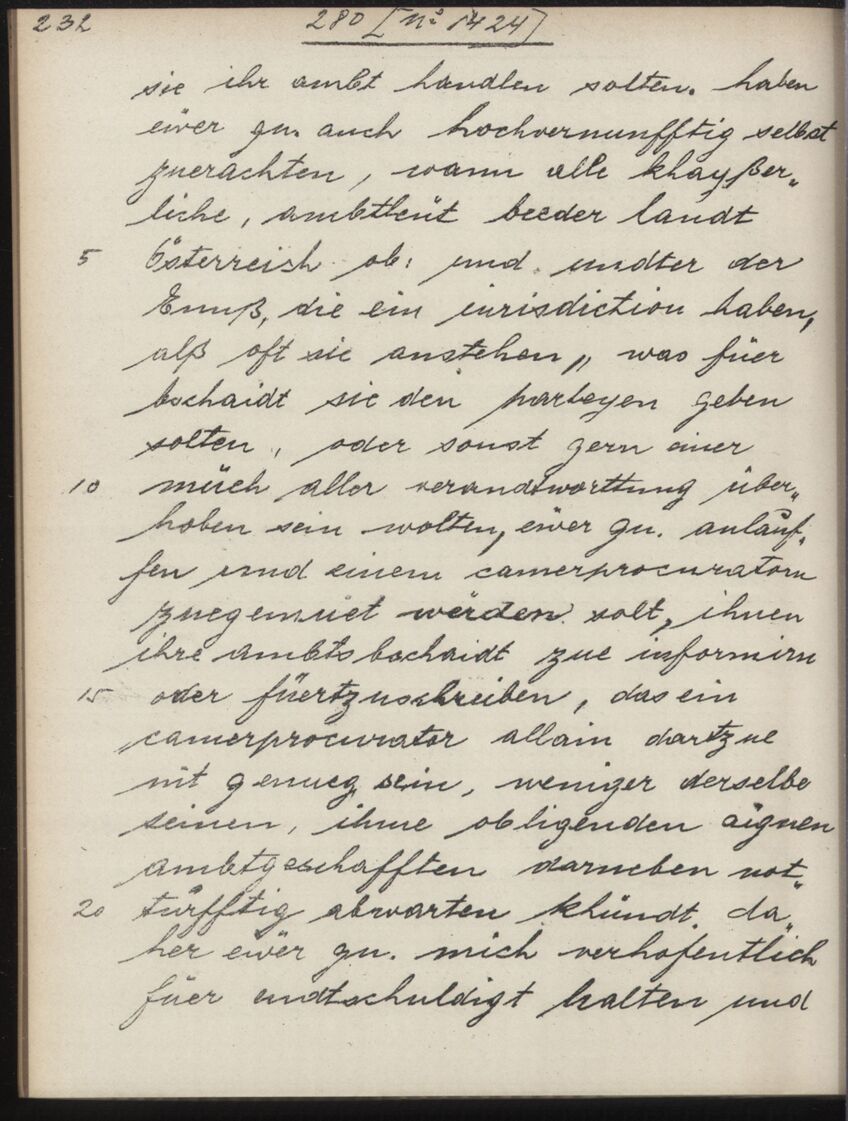 232 280 [Nº 1424]
sie ihr ambt handlen solten. haben
eẅer gn. auch hochvernunfftig selbst
zuerachten, wann alle khayßer„
liche, ambtleüt beeder landt
5 Österreich ob: und undter der
Ennß, die ein iurisdiction haben,
alß oft sie anstehen„ was füer
bschaidt sie den parteyen geben
solten, oder sonst gern einer
10 müeh aller verandtworttung über„
hoben sein wolten, eẅer gn. anlauf„
fen und einem camerprocuratorn
zuegemuet werden solt, ihnen
ihre ambtsbschaidt zue informirn
15 oder füertzuschreiben, das ein
camerprocurator allain dartzue
nit genueg sein, weniger derselbe
seinen, ihme obligenden aignen
ambtgeschafften darneben not„
20 türfftig abwarten khündt, da„
her eẅer gn. mich verhofentlich
füer endtschuldigt halten und